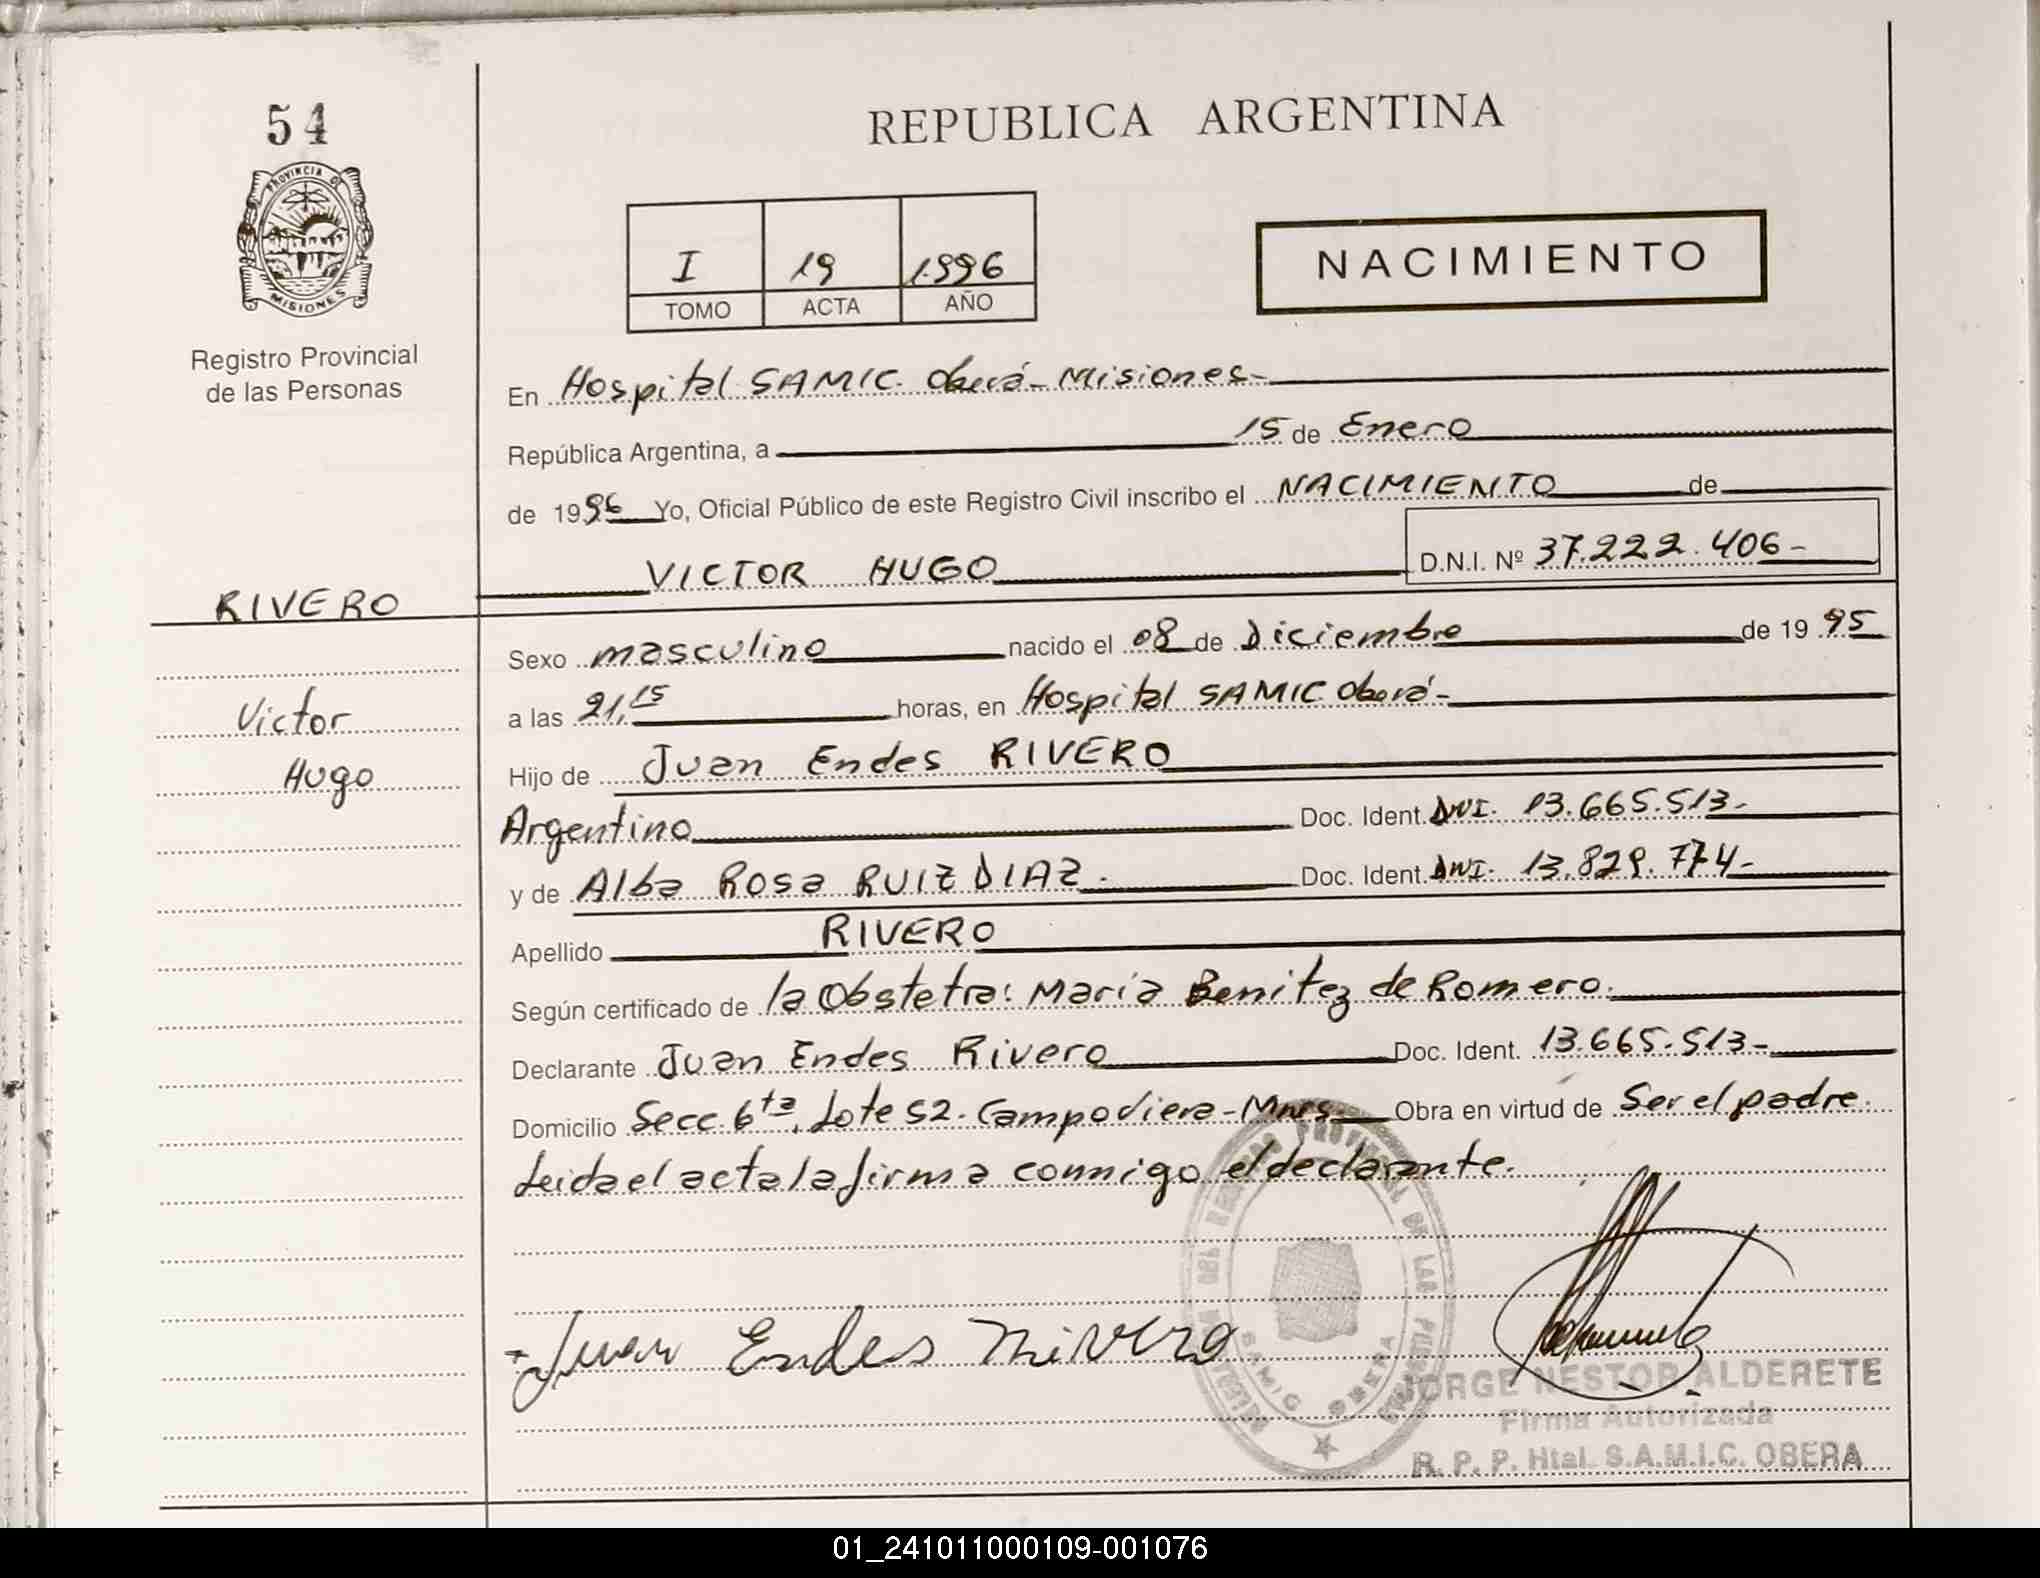 54
PROVINCIA DE
MISIONES
Registro Provincial
de las Personas
RIVERO
Victor
Hugo
REPUBLICA ARGENTINA
I 19 1.996
TOMO ACTA AÑO
NACIMIENTO
En Hospital SAMIC. Oberá- Misiones-
República Argentina, a 15 de Enero
de 1996 Yo, Oficial Público de este Registro Civil inscribo el NACIMIENTO de
VICTOR HUGO D.N.I. Nº 37.222.406-
Sexo masculino nacido el 08 de Diciembre de 1995
a las 21,15 horas, en Hospital SAMIC Oberá-
Hijo de Juan Endes RIVERO
Argentino Doc. Ident. DNI. 13.665.513-
y de Alba Rosa RUIZ DIAZ. Doc. Ident. DNI. 13.829.774-
Apellido RIVERO
Según certificado de la Obstetra: Maria Benitez de Romero.
Declarante Juan Endes Rivero Doc. Ident. 13.665.513-
Domicilio Secc. 6ta, Lote 52. Campo Viera- Mnes- Obra en virtud de Ser el padre.
Leida el acta la firma conmigo el declarante.
Juan Endes Rivero
SAMIC OBERA
JORGE NESTOR ALDERETE
Firma Autorizada
R. P. P. Htal. S.A.M.I.C. OBERA
01_241011000109-001076